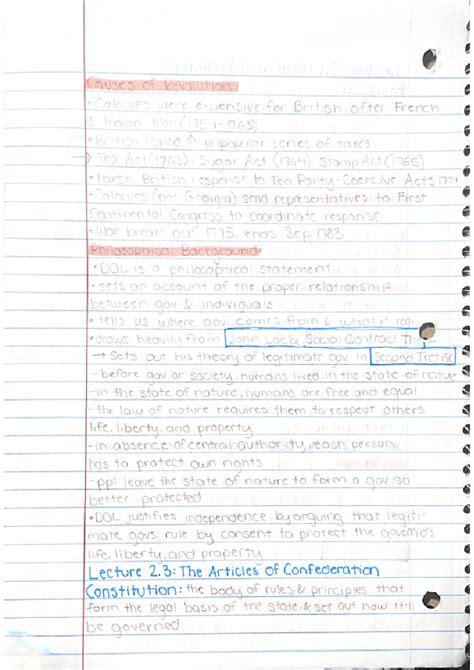 Causes of Revolution
• Colonies were expensive for British, after French
& Indian War (1754-1763)
• British levied ↑ unpopular series of taxes
→ Tea Act (1763), Sugar Act (1764) Stamp Act (1765)
• Harsh British response to Tea Party-Coercive Acts 1774
• Colonies (not Georgia) send representatives to First
Continental Congress to coordinate response
• War breaks out 1775, ends Sep 1783
Philosophical Background
• DOL is a philosophical statement
• sets an account of the proper relationship
between gov & individuals
• tells us where gov comes from & what it
• draws heavily from John Locke Social Contract
→ Sets out his theory of legitimate gov in Second
- before gov or society, humans lived in the state of nature
- in the state of nature, humans are free and equal
- the law of nature requires them to respect others
life, liberty, and property
- in absence of central authority, each person
has to protect own rights
- ppl leave the state of nature to form a gov so
better protected
• DOL justifies independence by arguing that legiti-
mate govs. rule by consent to protect the
life, liberty, and property
Lecture 2.3: The Articles of Confederation
Constitution: the body of rules & principles that
form the legal basis of the state, & set out how it'll
be governed